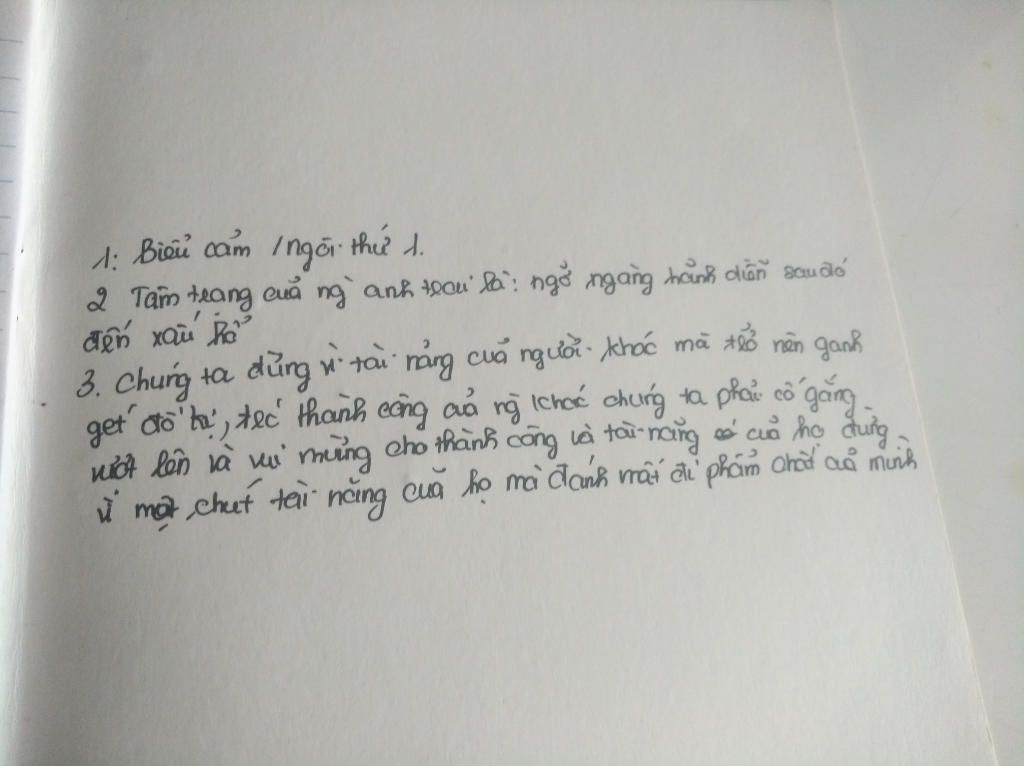 1: Biểu cảm / ngôi thứ 1.
2 Tâm trạng cuả ng` anh trai là: ngở ngàng hảnh diễn sau đó
đến xấu hổ
3. Chúng ta đừng vì tài nảng cuả người khác mà trở nên ganh
get đố kị, trước thành công cuả ng khác chúng ta phải cố gắng
vượt lên và vui mừng cho thành công và tài năng cuả họ đừng
vì một chút tài năng cuả họ mà đánh mất đi phẩm chất cuả mình